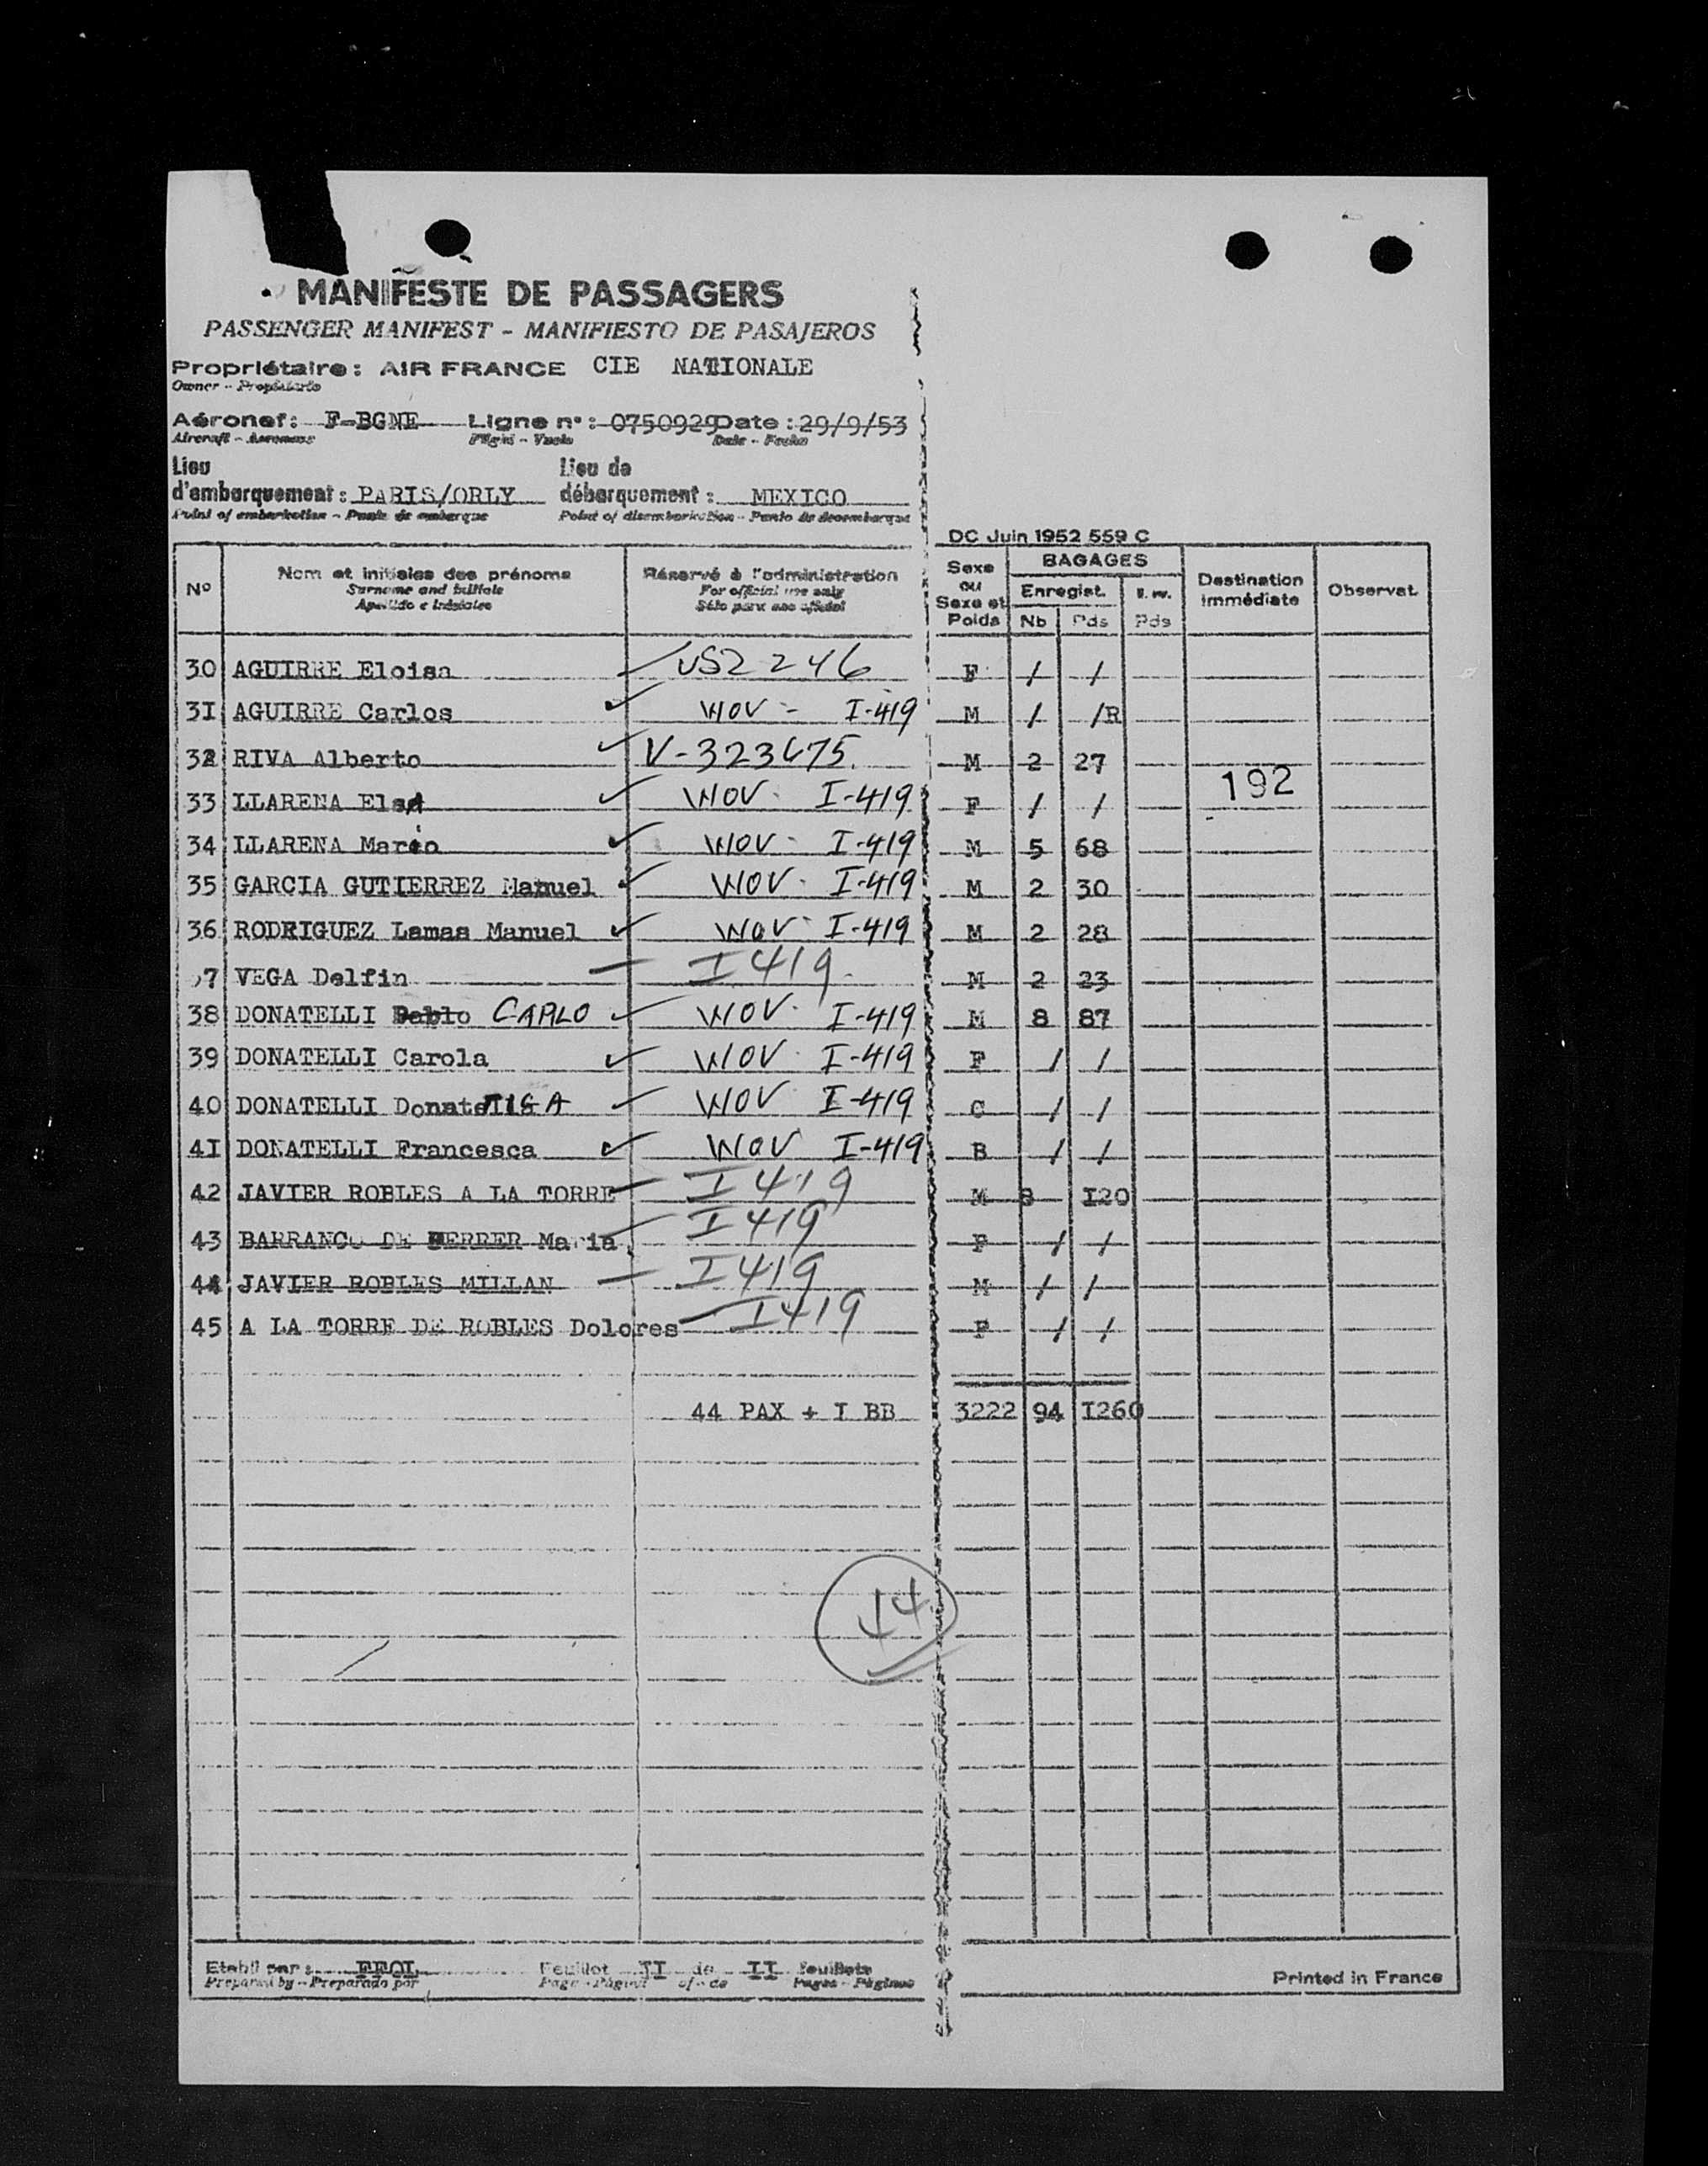 MANIFESTE DE PASSAGERS
PASSENGER MANIFEST - MANIFIESTO DE PASAJEROS
Propriétaire : AIR FRANCE CIE NATIONALE
Owner - Propietario
Aéronef : F-BGNE Ligne n° : 0750929 Date : 29/9/53
Aircraft - Aeronave Flight - Vuelo Date - Fecha
Lieu d'embarquement : PARIS/ORLY Lieu de débarquement : MEXICO
Point of embarkation - Punto de embarque Point of disembarkation - Punto de desembarque
DC Juin 1952 559 C
N° Nom et initiales des prénoms Réservé à l'administration Sexe ou Sexe et Poids BAGAGES Enregist. Nb Pds Pds Destination immédiate Observat.
Surname and initials For official use only
Apellido e iniciales Sólo para uso oficial
30 AGUIRRE Eloisa VS2 246 F / /
3I AGUIRRE Carlos WOV - I-419 M / /R
32 RIVA Alberto V-323675. M 2 27
192
33 LLARENA Elsa WOV - I-419 F / /
34 LLARENA Mario WOV - I-419 M 5 68
35 GARCIA GUTIERREZ Manuel WOV - I-419 M 2 30
36 RODRIGUEZ Lamas Manuel WOV - I-419 M 2 28
7 VEGA Delfin I 419 M 2 23
38 DONATELLI Pablo CARLO WOV - I-419 M 8 87
39 DONATELLI Carola WOV - I-419 F / /
40 DONATELLI WOV I-419 C / /
4I DONATELLI Francesca WOV I-419 B / /
42 JAVIER ROBLES A LA TORRE I 419 M 8 I20
43 BARRANCO DE FERRER Maria I 419 F / /
44 JAVIER ROBLES MILLAN I 419 M / /
45 A LA TORRE DE ROBLES Dolores I 419 F / /
44 PAX + I BB 3222 94 I260
44
Etabli par : Feuillet II de II feuillets
Prepared by - Preparado por Page - Página of - de Pages - Páginas
Printed in France